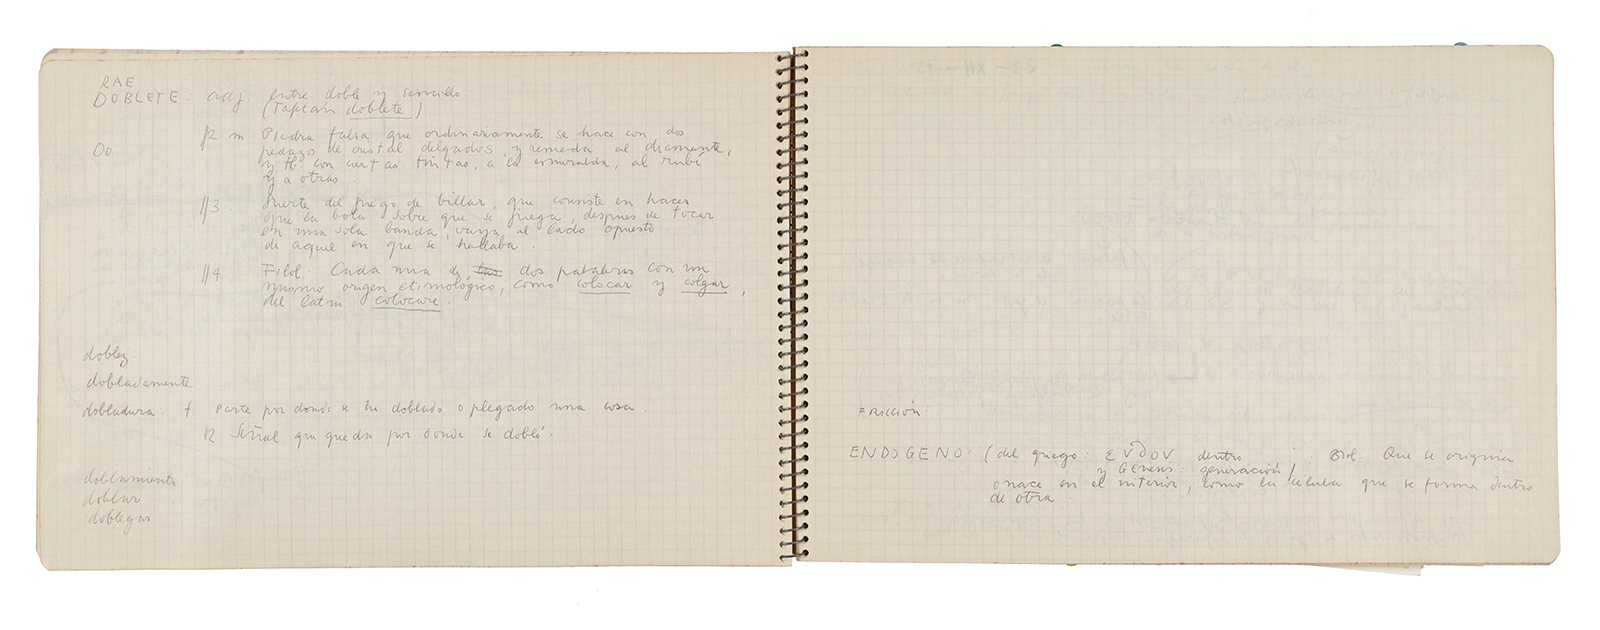 RAE
DOBLETE: adj. entre doble y sencillo.
(Tafetán doblete)
Do
//2 m Piedra falsa que ordinariamente se hace con dos
pedazos de cristal delgados, y remeda al diamante,
y tb con ciertas tintas, a la esmeralda, al rubí
y a otras.
//3. Suerte del juego de billar, que consiste en hacer
que la bola sobre que se juega, después de tocar
en una sola banda, vaya al lado opuesto
de aquel en que se hallaba.
//4 Filol. Cada una de las dos palabras con un
mismo origen etimológico, como colocar y colgar,
del latín colocare.
doblez
dobladamente
dobladura: f Parte por donde se ha doblado o plegado una cosa.
//2 Señal que queda por donde se dobló.
doblamiento
doblar
doblegar
FRICCIÓN:
ENDOGENO: (del griego: ενδον dentro : Biol. Que se origina
y GÉNESIS: generación)
o nace en el interior, como la célula que se forma dentro
de otra